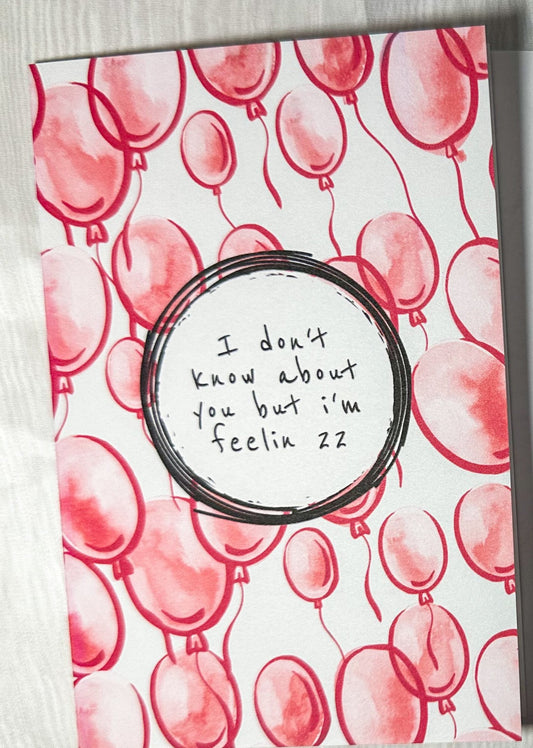 I don't
know about
you but i'm
feelin 22